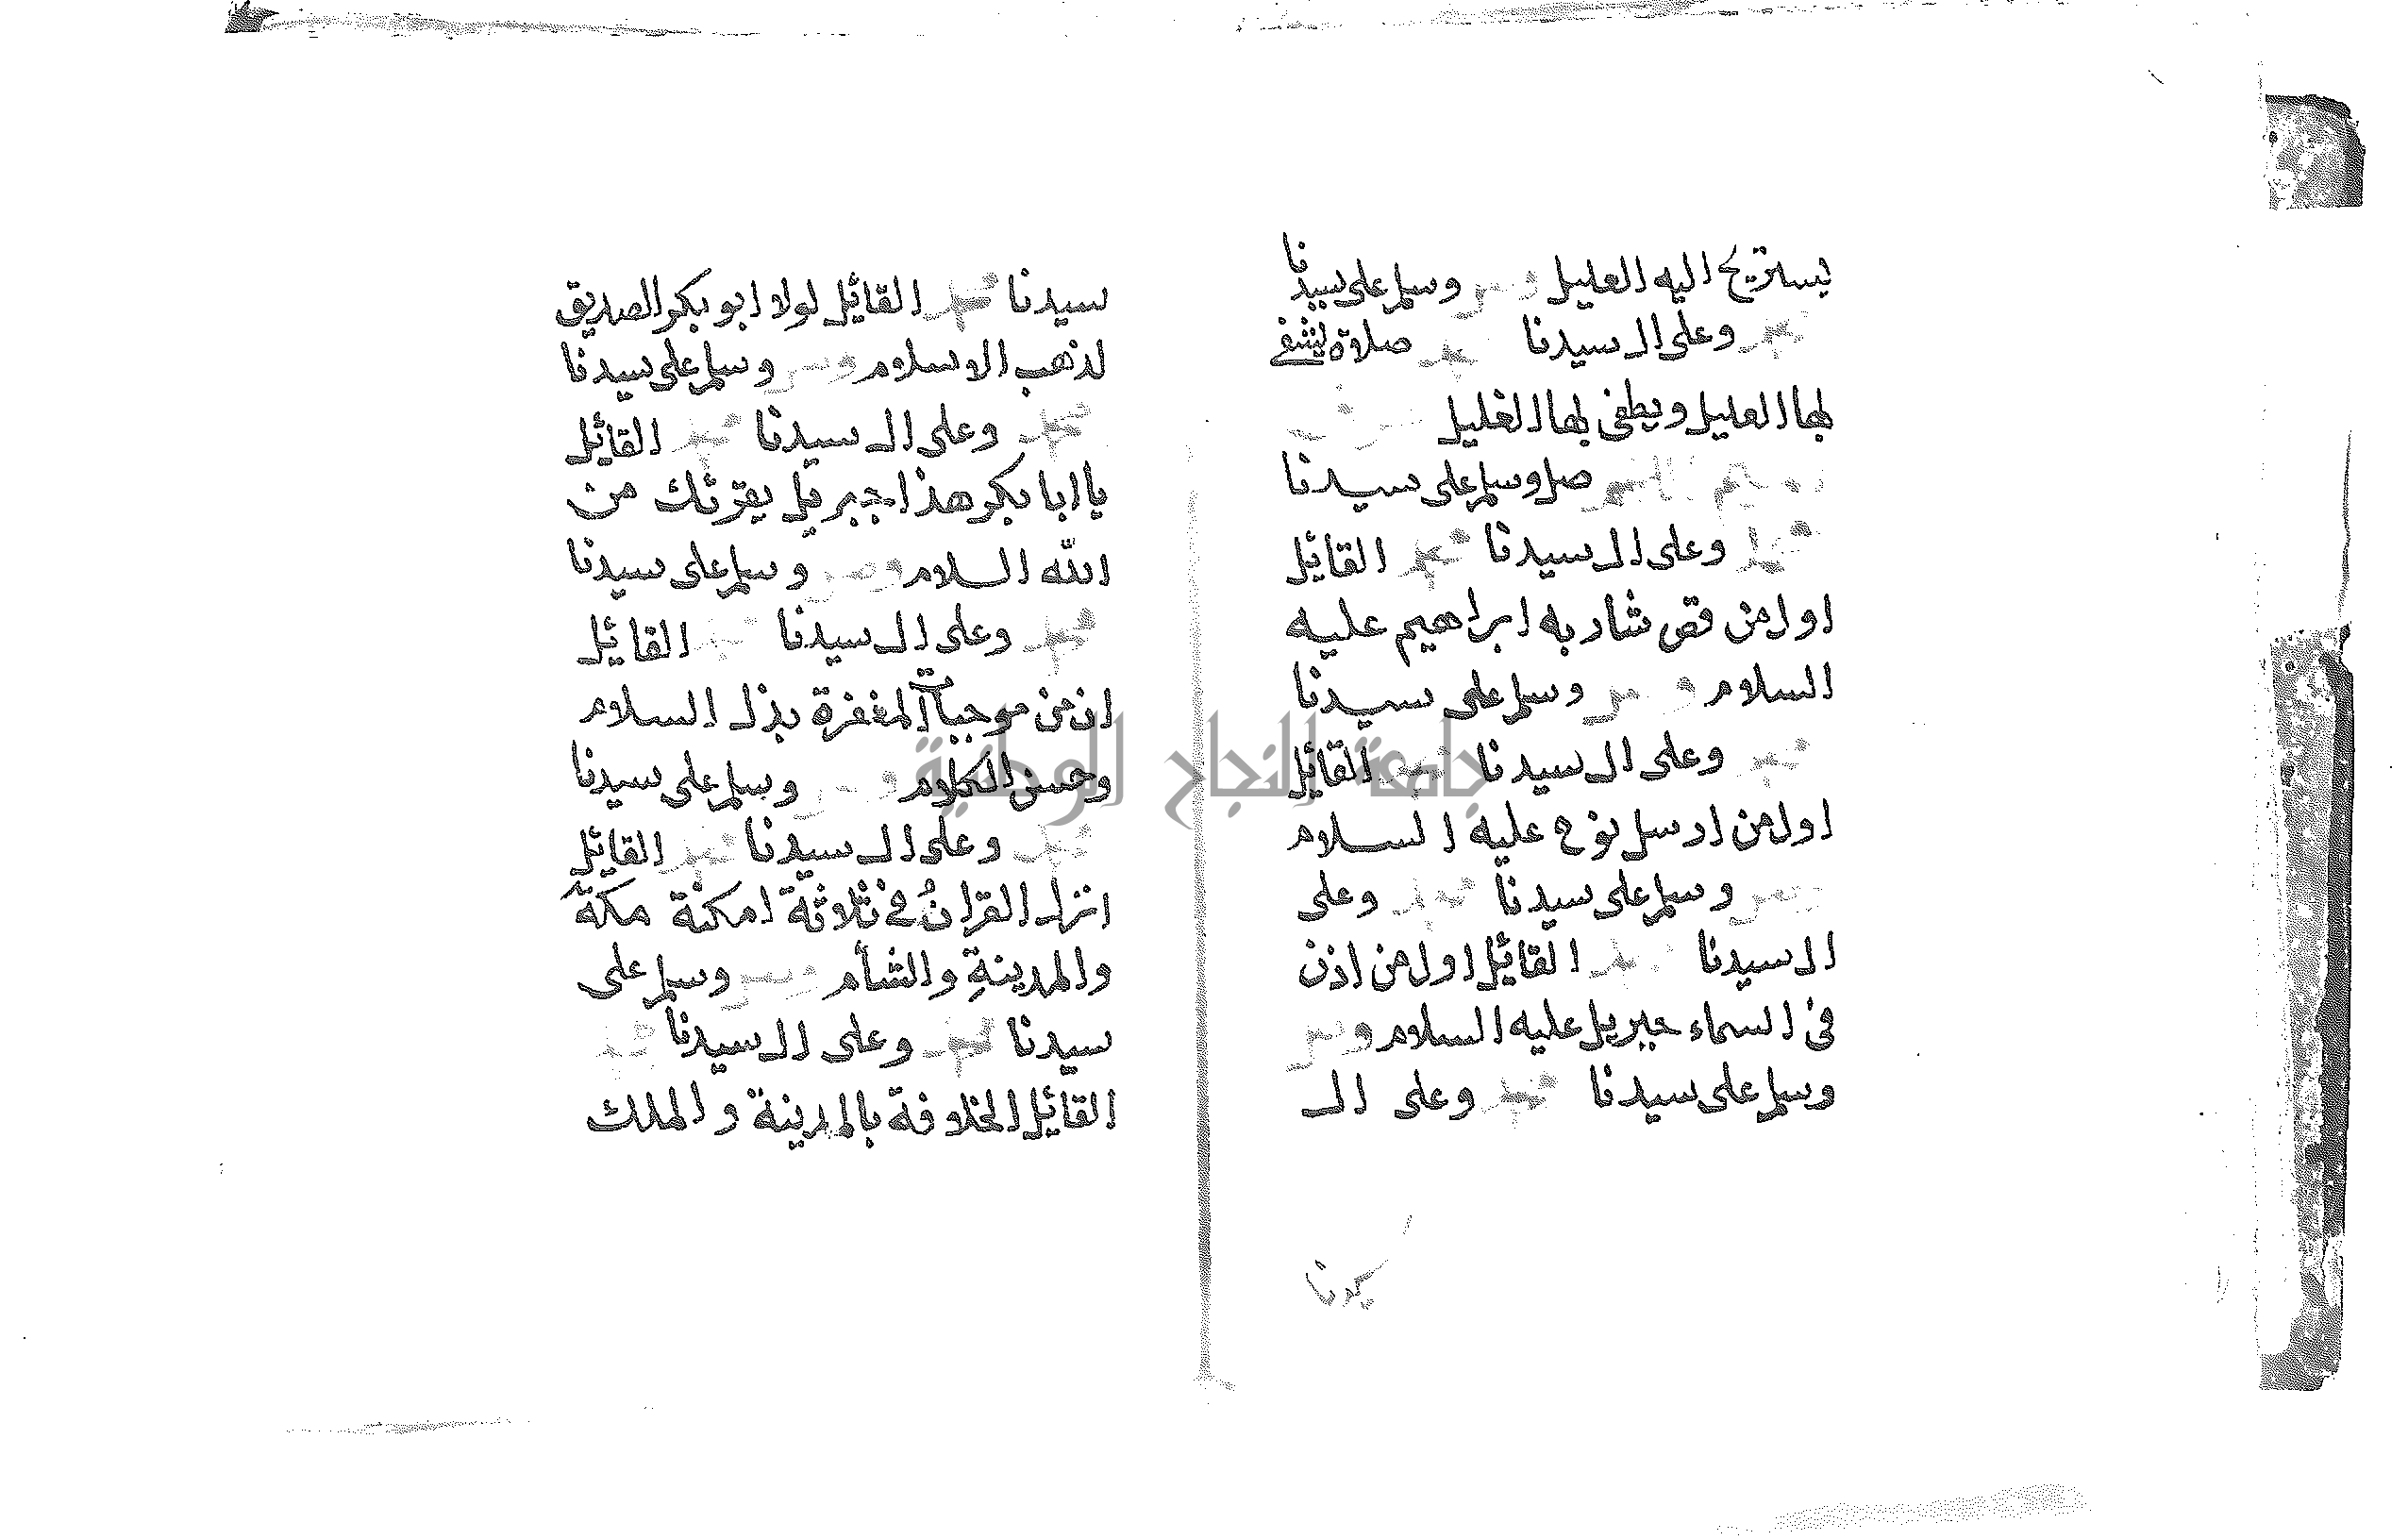 يستريح اليه العليل وصل وسلم على سيدنا
محمد وعلى ال سيدنا محمد صلاة يشفى
بها العليل ويطفى بها الغليل
اللهم صل وسلم على سيدنا
محمد وعلى ال سيدنا محمد القائل
اول من قص شاربه ابراهيم عليه
السلام وصل وسلم على سيدنا
محمد وعلى ال سيدنا محمد القائل
اول من ارسل نوح عليه السلام
وصل وسلم على سيدنا محمد وعلى
ال سيدنا محمد القائل اول من اذن
فى السماء جبريل عليه السلام وصل
وسلم على سيدنا محمد وعلى ال
سيدنا
سيدنا محمد القائل لولا ابو بكر الصديق
لذهب الاسلام وصل وسلم على سيدنا
محمد وعلى ال سيدنا محمد القائل
يا ابا بكر هذا جبريل يقرئك من
الله السلام وصل وسلم على سيدنا
محمد وعلى ال سيدنا محمد القائل
ان من موجبات المغفرة بذل السلام
وحسن الكلام وصل وسلم على سيدنا
محمد وعلى ال سيدنا محمد القائل
انزل القران في ثلاثة امكنة مكة
والمدينة والشأم وصل وسلم على
سيدنا محمد وعلى ال سيدنا محمد
القائل الخلافة بالمدينة والملك
جامعة النجاح الوطنية